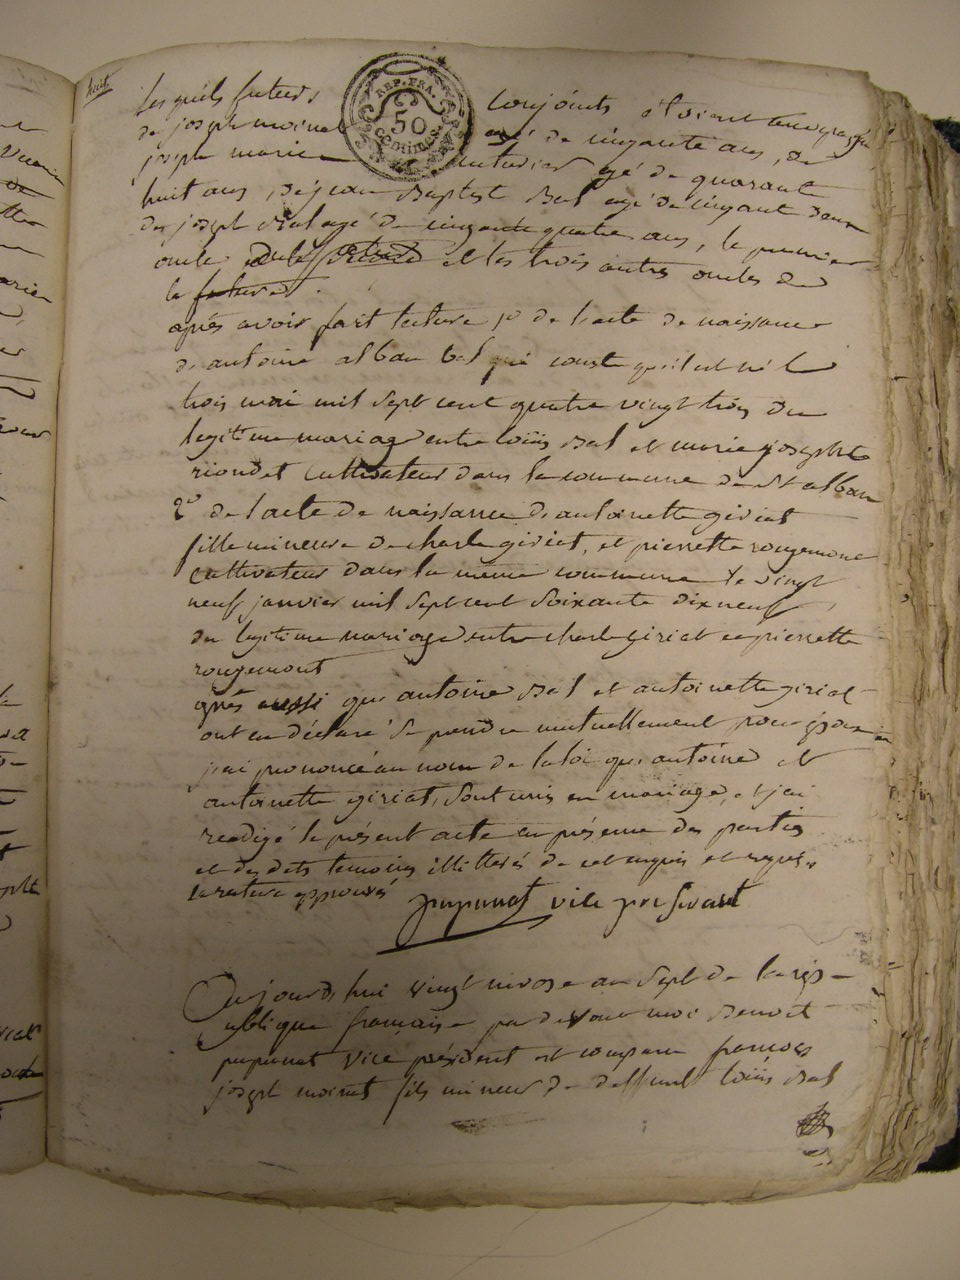 huit
Les quels futurs conjoints étoient accompagnés
REP. FRA.
50
centimes
de joseph moinat agé de cinquante ans, de
joseph marie cultivateur agé de quarant
huit ans, de jean Baptist Bal agé de cinquant deux
de joseph Bal agé de cinquante quatre ans, le premier
oncle et les trois autres oncles de
la future
après avoir fait lecture 1º de l'acte de naissance
de antoine alban bal qui conste qu'il est né le
trois mai mil sept cent quatre vingt trois du
legitime mariage entre loüis Bal et marie josephte
riondet cultivateur dans la commune de St alban
2º de l'acte de naissance d'antoinette giriat
fille mineure de charle giriat, et pierrette rougemont
cultivateur dans la même commune le vingt
neuf janvier mil sept cent soixante dix neuf
du legitime mariage entre charle giriat et pierrette
rougemont
après aussi que antoine Bal et antoinette giriat
ont eu déclaré se prendre mutuellement pour époux
j'ai prononcé au nom de la loi que antoine et
antoinette giriat, sont unis en mariage, et j'ai
redigé le présent acte en présence des parties
et des dits temoins illitterés de ce enquis et requis
la rature approuvé
pupunat vice president
Aujourd'hui vingt nivose an sept de la rép
ublique française par devant moi Benoit
pupunat vice président est comparu françois
joseph moinat fils mineur de deffunt loüis Bal